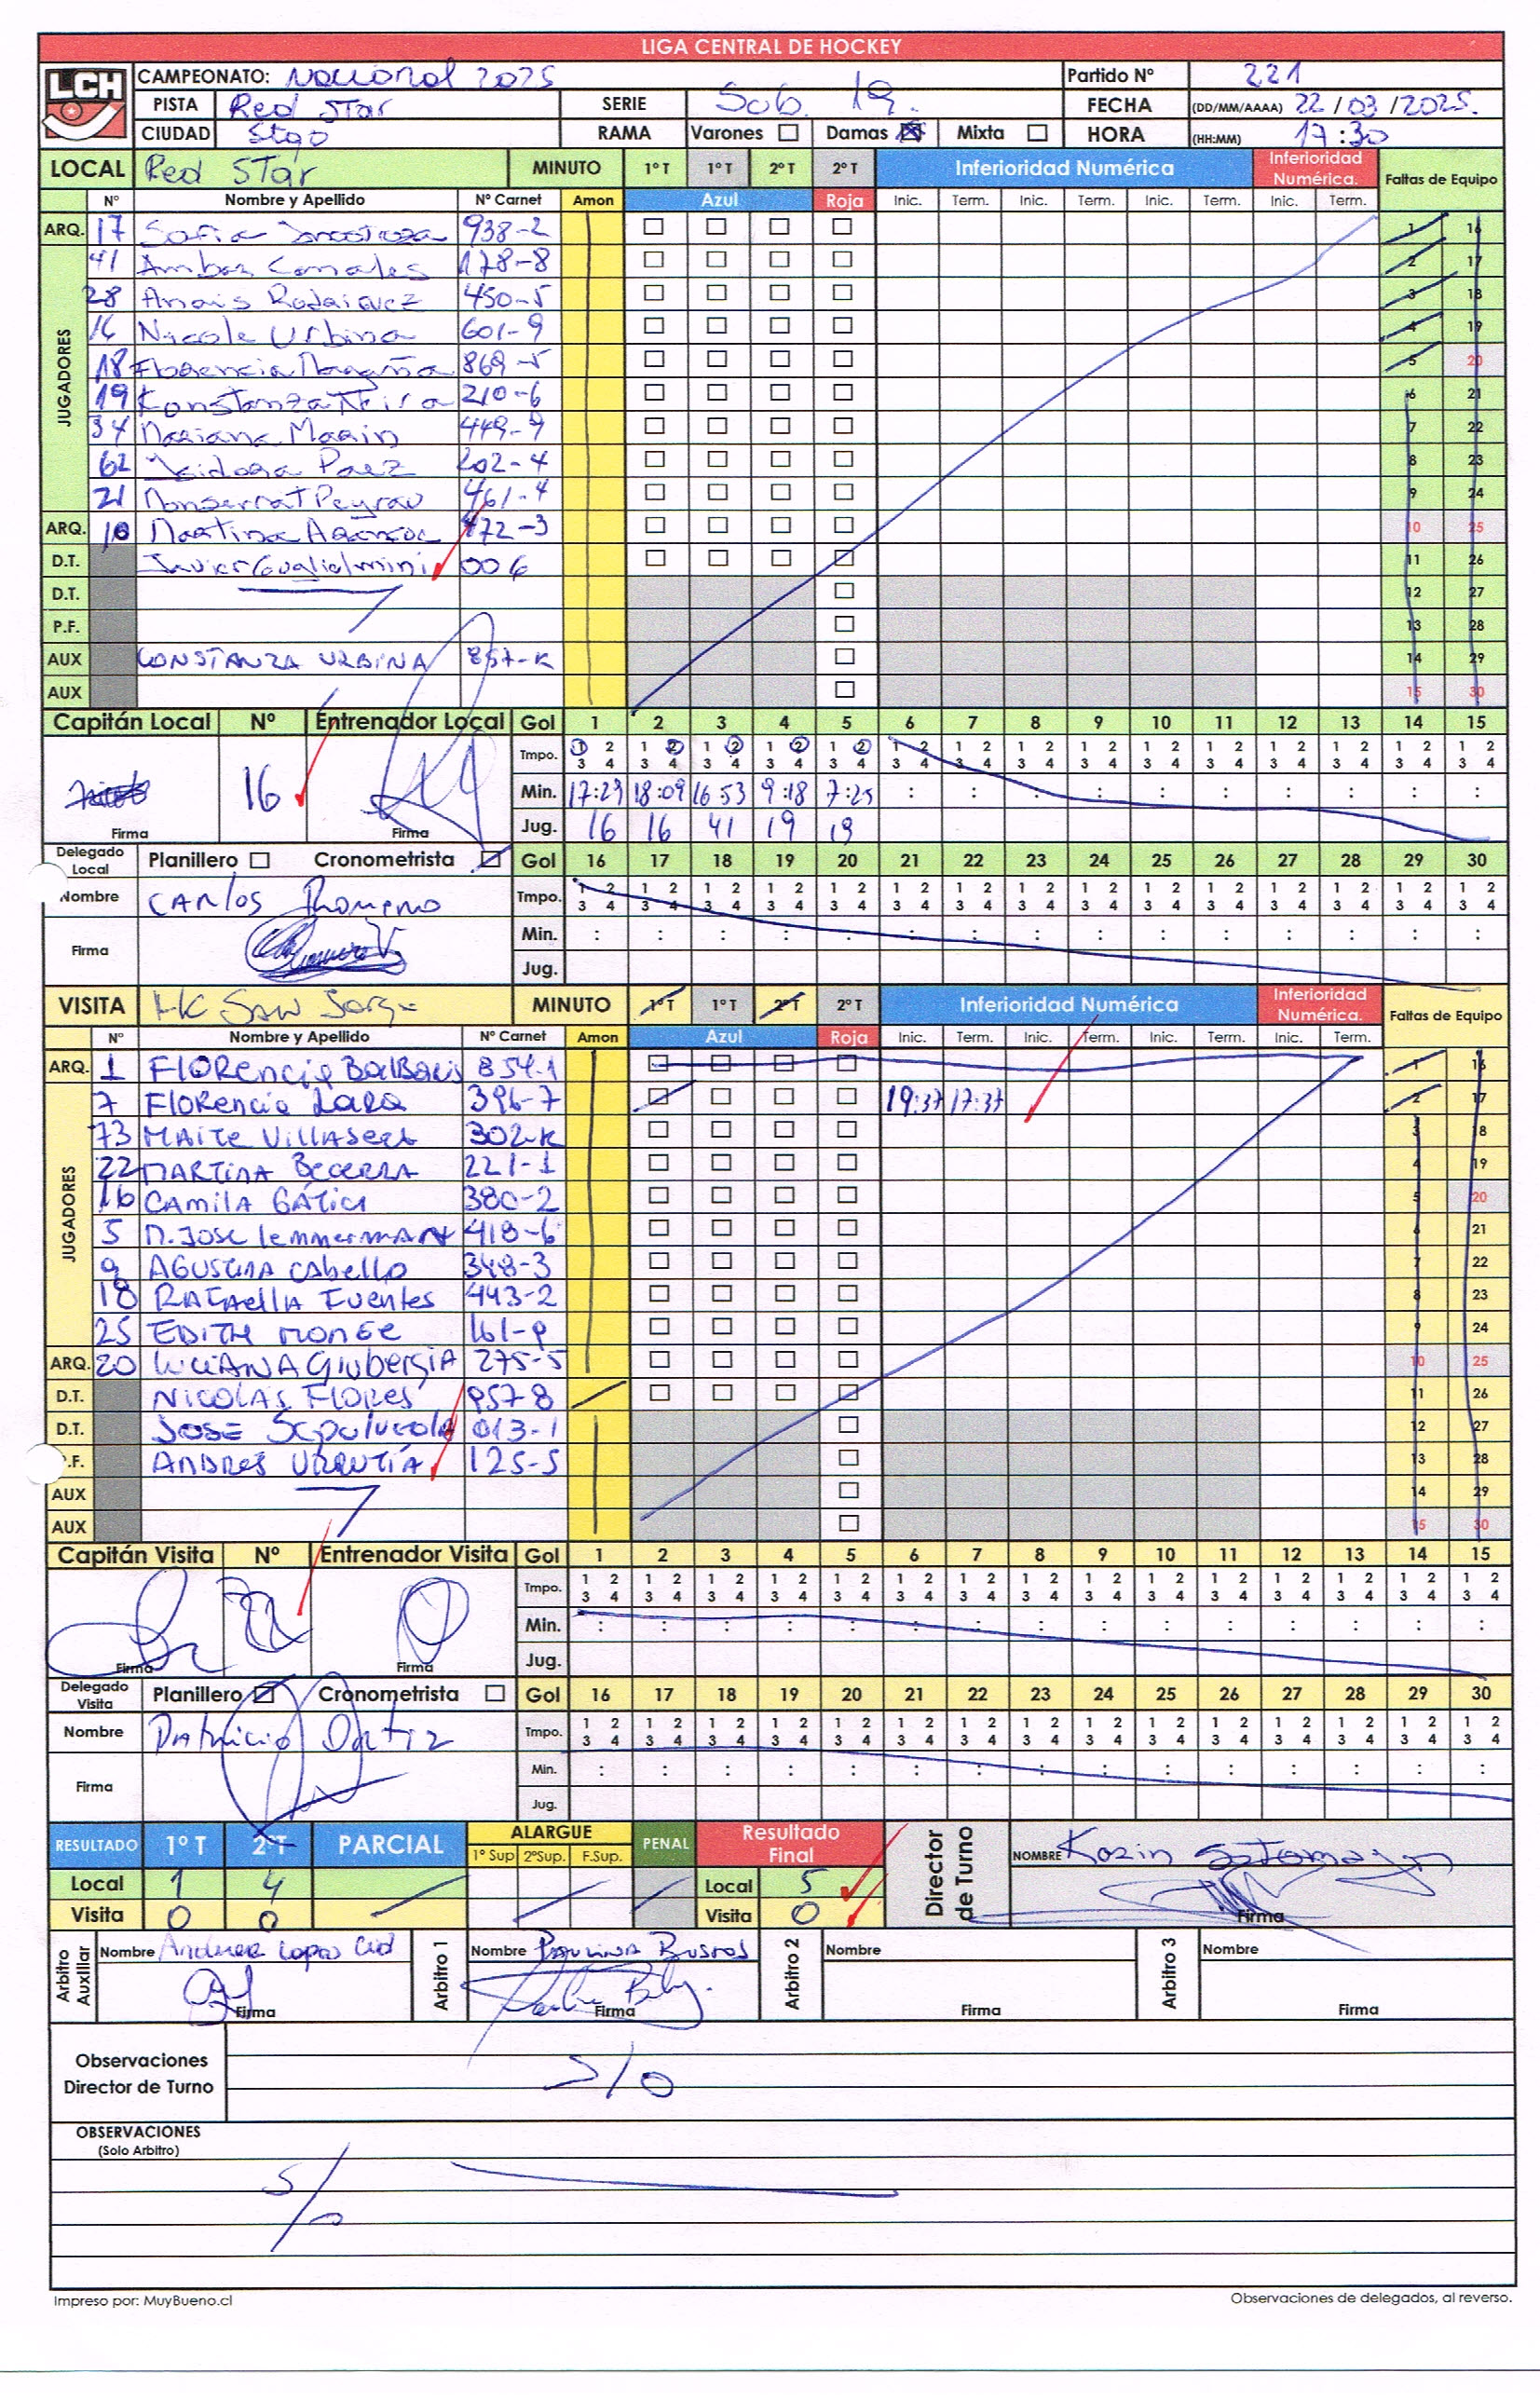 LIGA CENTRAL DE HOCKEY
LCH
CAMPEONATO: Nacional 2025 Partido Nº 221
PISTA Red Star SERIE Sub. 19. FECHA (DD/MM/AAAA) 22/03/2025.
CIUDAD Stgo RAMA Varones Damas Mixta HORA (HH:MM) 17:30
LOCAL Red Star MINUTO 1º T 1º T 2º T 2º T Inferioridad Numérica Inferioridad Numérica. Faltas de Equipo
Nº Nombre y Apellido Nº Carnet Amon Azul Roja Inic. Term. Inic. Term. Inic. Term. Inic. Term.
ARQ. 17 Sofia 938-2 1 16
JUGADORES
41 Ambar Canales 178-8 2 17
28 Anais Rodriguez 450-5 3 18
16 Nicole Urbina 601-9 4 19
18 Florencia Magaña 869-5 5 20
19 Konstanza Neira 210-6 6 21
34 Mariana Marin 449-9 7 22
62 Isidora Paez 202-4 8 23
21 Monserrat Peyrau 461-4 9 24
ARQ. 10 Martina 472-3 10 25
D.T. Javier Guglielmini 006 11 26
D.T. 12 27
P.F. 13 28
AUX CONSTANZA URBINA 857-K 14 29
AUX 15 30
Capitán Local Nº Entrenador Local Gol 1 2 3 4 5 6 7 8 9 10 11 12 13 14 15
16 Tmpo. 1 2 3 4 1 2 3 4 1 2 3 4 1 2 3 4 1 2 3 4 1 2 3 4 1 2 3 4 1 2 3 4 1 2 3 4 1 2 3 4 1 2 3 4 1 2 3 4 1 2 3 4 1 2 3 4 1 2 3 4
Min. 17:29 18:09 16 53 9:18 7:25 : : : : : : : : : :
Firma Firma Jug. 16 16 41 19 19
Delegado Local Planillero Cronometrista Gol 16 17 18 19 20 21 22 23 24 25 26 27 28 29 30
Nombre CARlos Romero Tmpo. 1 2 3 4 1 2 3 4 1 2 3 4 1 2 3 4 1 2 3 4 1 2 3 4 1 2 3 4 1 2 3 4 1 2 3 4 1 2 3 4 1 2 3 4 1 2 3 4 1 2 3 4 1 2 3 4 1 2 3 4
Firma Min. : : : : : : : : : : : : : : :
Jug.
VISITA HC San Jorge MINUTO 1º T 1º T 2º T 2º T Inferioridad Numérica Inferioridad Numérica. Faltas de Equipo
Nº Nombre y Apellido Nº Carnet Amon Azul Roja Inic. Term. Inic. Term. Inic. Term. Inic. Term.
ARQ. 1 FLORencia 854-1 1 16
JUGADORES
7 FLORencia LARA 396-7 19:37 17:37 2 17
73 MAITe VillAseca 302-K 3 18
22 MARTINA BECERRA 221-1 4 19
16 CAMilA GÁTICA 380-2 5 20
5 M. JOSE lemmermANN 418-6 6 21
9 AGUSTINA CAbello 348-3 7 22
18 RAFAellA Fuentes 443-2 8 23
25 EDITH MONGE 161-9 9 24
ARQ. 20 LUCIANA GIUbeRGIA 275-5 10 25
D.T. NICOLÁS FLORES 957-8 11 26
D.T. JOSE Sepulveda 013-1 12 27
P.F. ANDRES URRUTÍA 125-5 13 28
AUX 14 29
AUX 15 30
Capitán Visita Nº Entrenador Visita Gol 1 2 3 4 5 6 7 8 9 10 11 12 13 14 15
22 Tmpo. 1 2 3 4 1 2 3 4 1 2 3 4 1 2 3 4 1 2 3 4 1 2 3 4 1 2 3 4 1 2 3 4 1 2 3 4 1 2 3 4 1 2 3 4 1 2 3 4 1 2 3 4 1 2 3 4 1 2 3 4
Min. : : : : : : : : : : : : : : :
Firma Firma Jug.
Delegado Visita Planillero Cronometrista Gol 16 17 18 19 20 21 22 23 24 25 26 27 28 29 30
Nombre Patricio Ortiz Tmpo. 1 2 3 4 1 2 3 4 1 2 3 4 1 2 3 4 1 2 3 4 1 2 3 4 1 2 3 4 1 2 3 4 1 2 3 4 1 2 3 4 1 2 3 4 1 2 3 4 1 2 3 4 1 2 3 4 1 2 3 4
Firma Min. : : : : : : : : : : : : : : :
Jug.
RESULTADO 1º T 2ºT PARCIAL ALARGUE 1º Sup 2ºSup. F.Sup. PENAL Resultado Final Director de Turno NOMBRE Karin Sotomayor
Local 1 4 Local 5
Visita 0 0 Visita 0 Firma
Arbitro Auxiliar Nombre Andrea Lopez Cid Arbitro 1 Nombre PAULINA BUSTOS Arbitro 2 Nombre Arbitro 3 Nombre
Firma Firma Firma Firma
Observaciones Director de Turno S/O
OBSERVACIONES
(Solo Arbitro)
S/O
Impreso por: MuyBueno.cl Observaciones de delegados, al reverso.